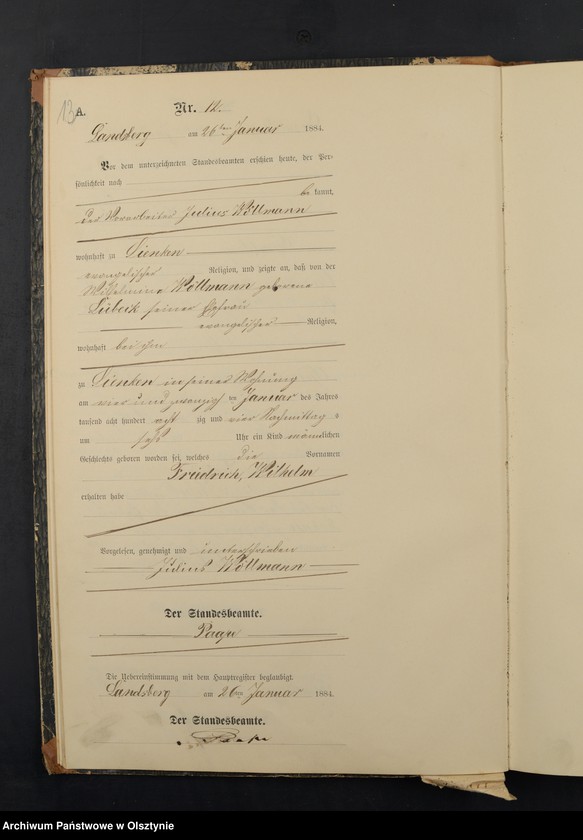 13
A.
Nr. 12.
Landsberg am 26ten Januar 1884.
Vor dem unterzeichneten Standesbeamten erschien heute, der Per-
sönlichkeit nach
be kannt,
der Vorarbeiter Julius Wöllmann
wohnhaft zu Dienken
evangelischer Religion, und zeigte an, daß von der
Wilhelmine Wöllmann geborene
Lübeck seiner Ehefrau
evangelischer Religion,
wohnhaft bei ihm
zu Dienken in seiner Wohnung
am vier und zwanzigsten Januar des Jahres
tausend acht hundert acht zig und vier Nachmittags
um Uhr ein Kind männlichen
Geschlechts geboren worden sei, welches die Vornamen
Freidrich, Wilhelm
erhalten habe
Vorgelesen, genehmigt und unterschrieben
Julius Wöllmann
Der Standesbeamte.
Die Uebereinstimmung mit dem Hauptregister beglaubigt.
Landsberg am 26ten Januar 1884.
Der Standesbeamte.
Archiwum Państwowe w Olsztynie